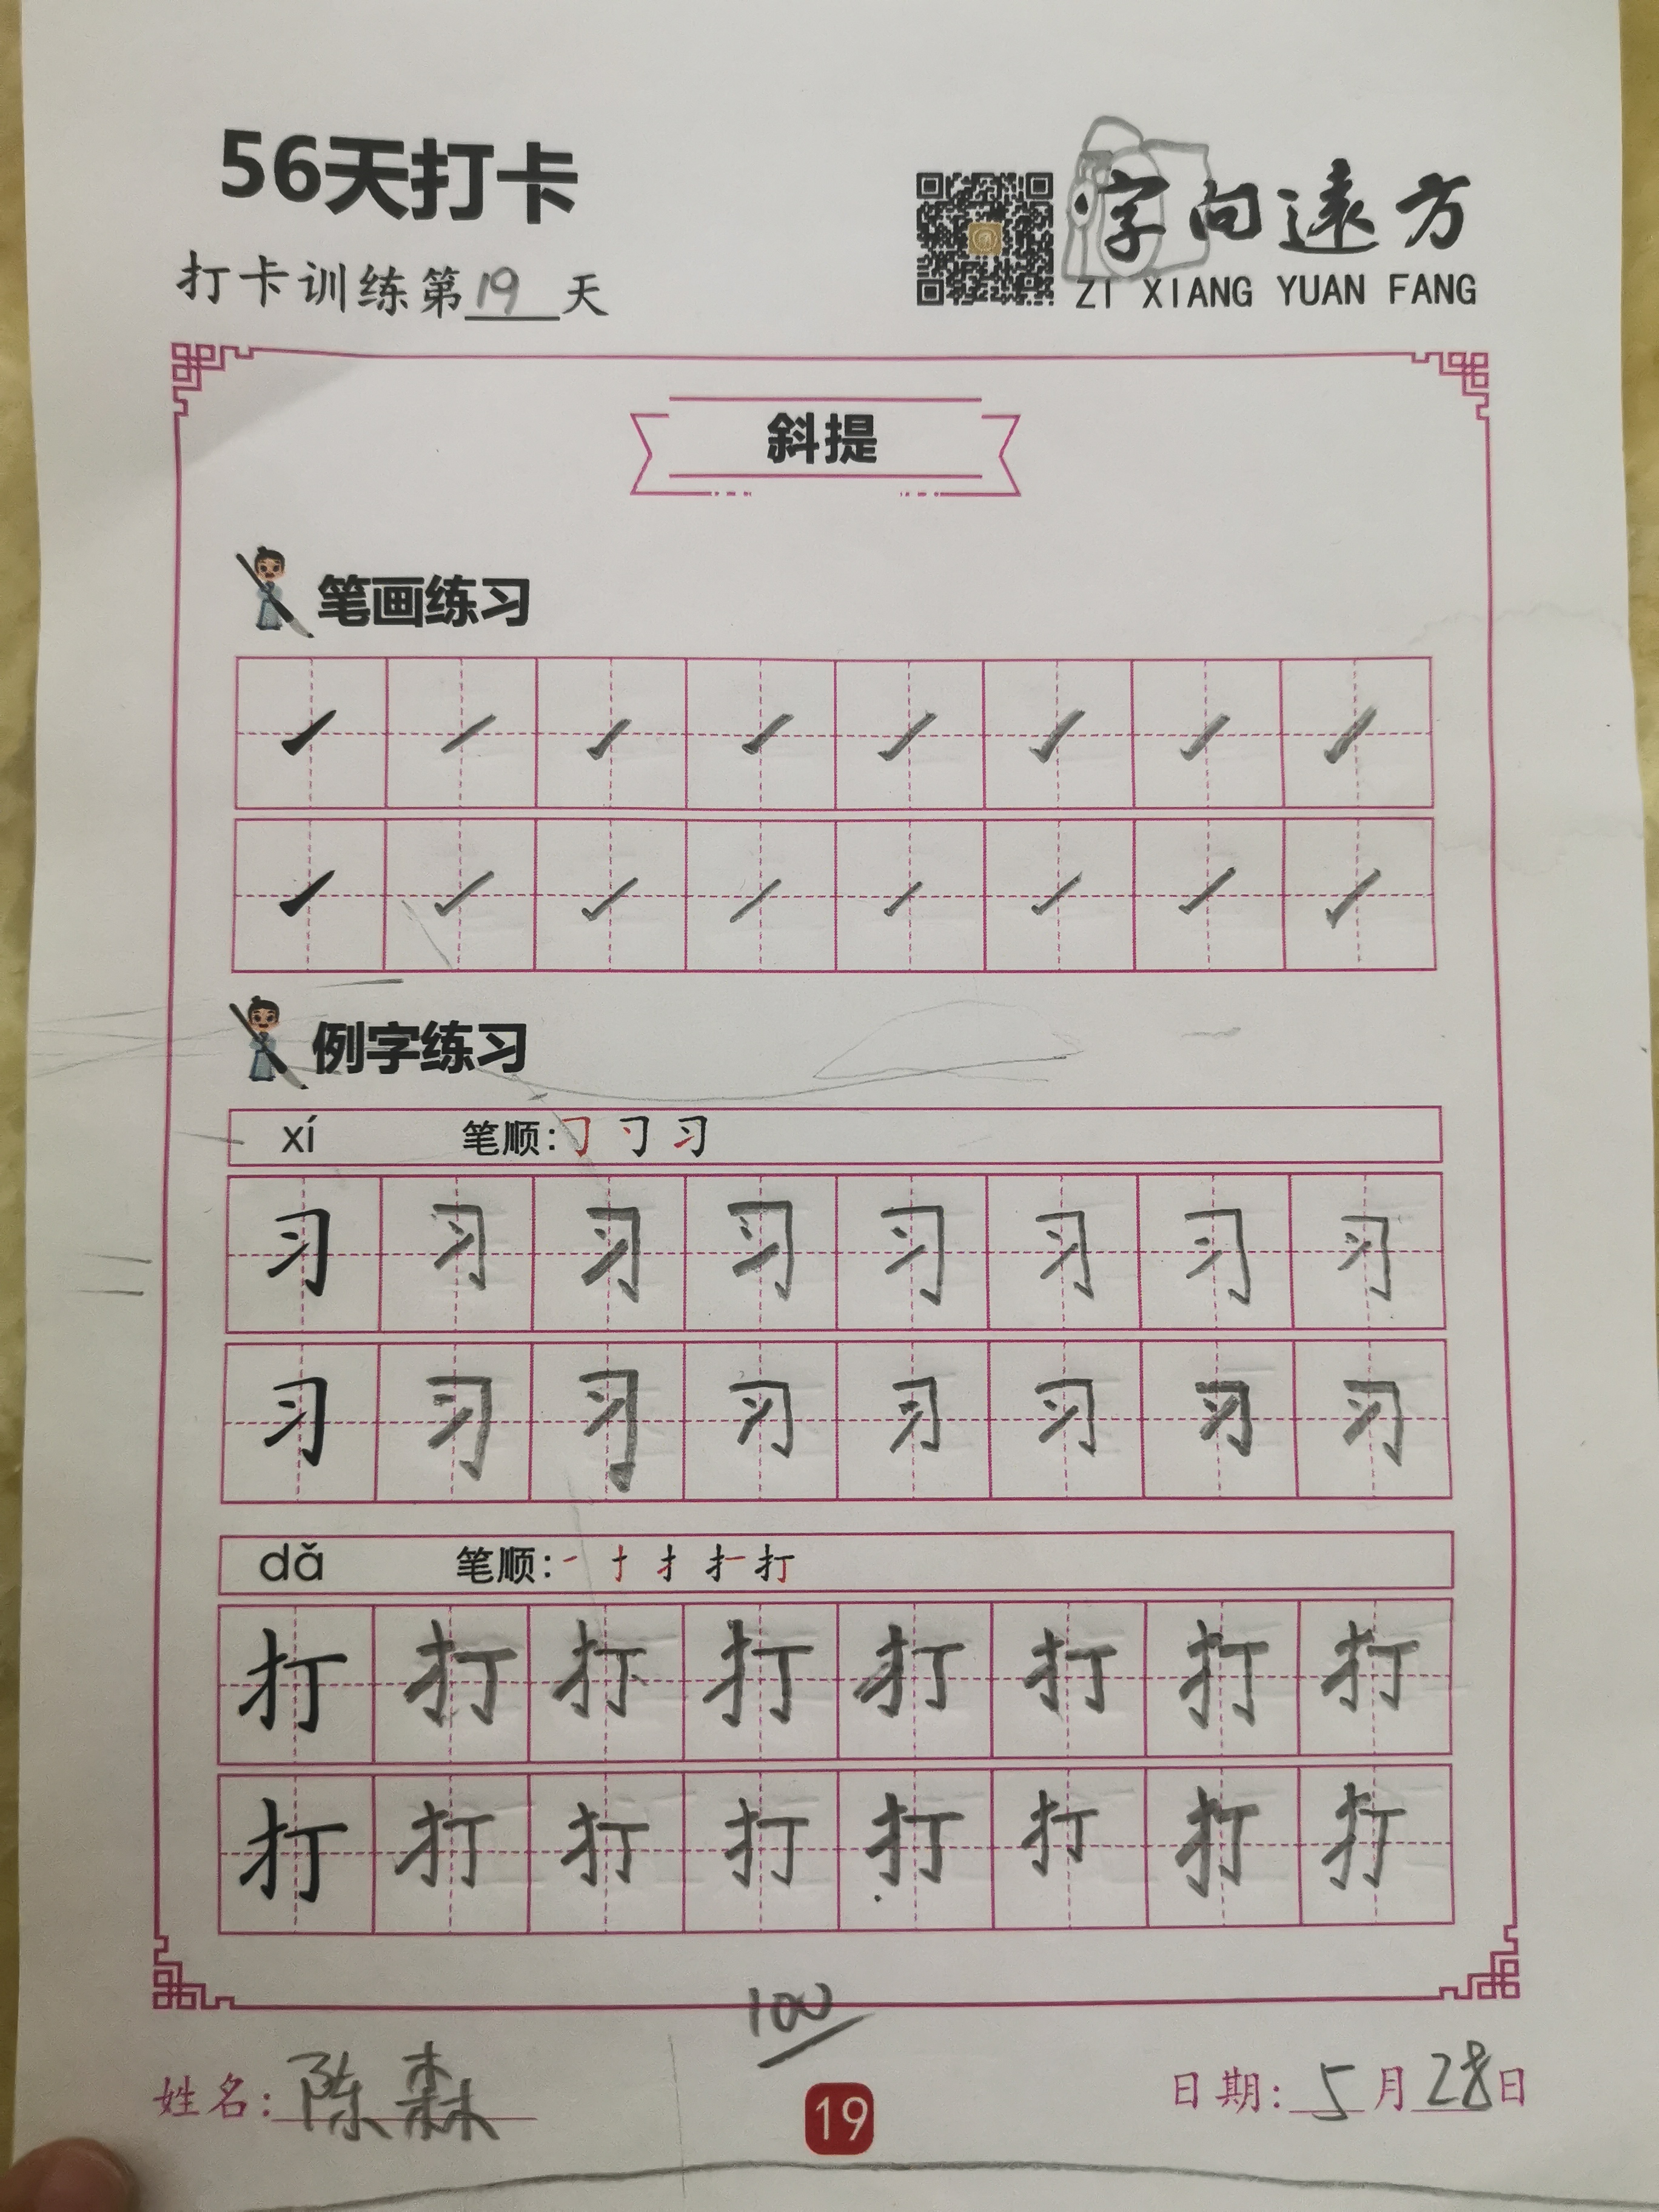 56天打卡
字向遠方
打卡训练第19天
ZI XIANG YUAN FANG
斜提
笔画练习
例字练习
xí 笔顺: 习
习 习 习 习 习 习 习 习
习 习 习 习 习 习 习 习
dǎ 笔顺: 一 扌 打
打 打 打 打 打 打 打 打
打 打 打 打 打 打 打 打
100
姓名: 陈森 19 日期: 5月28日